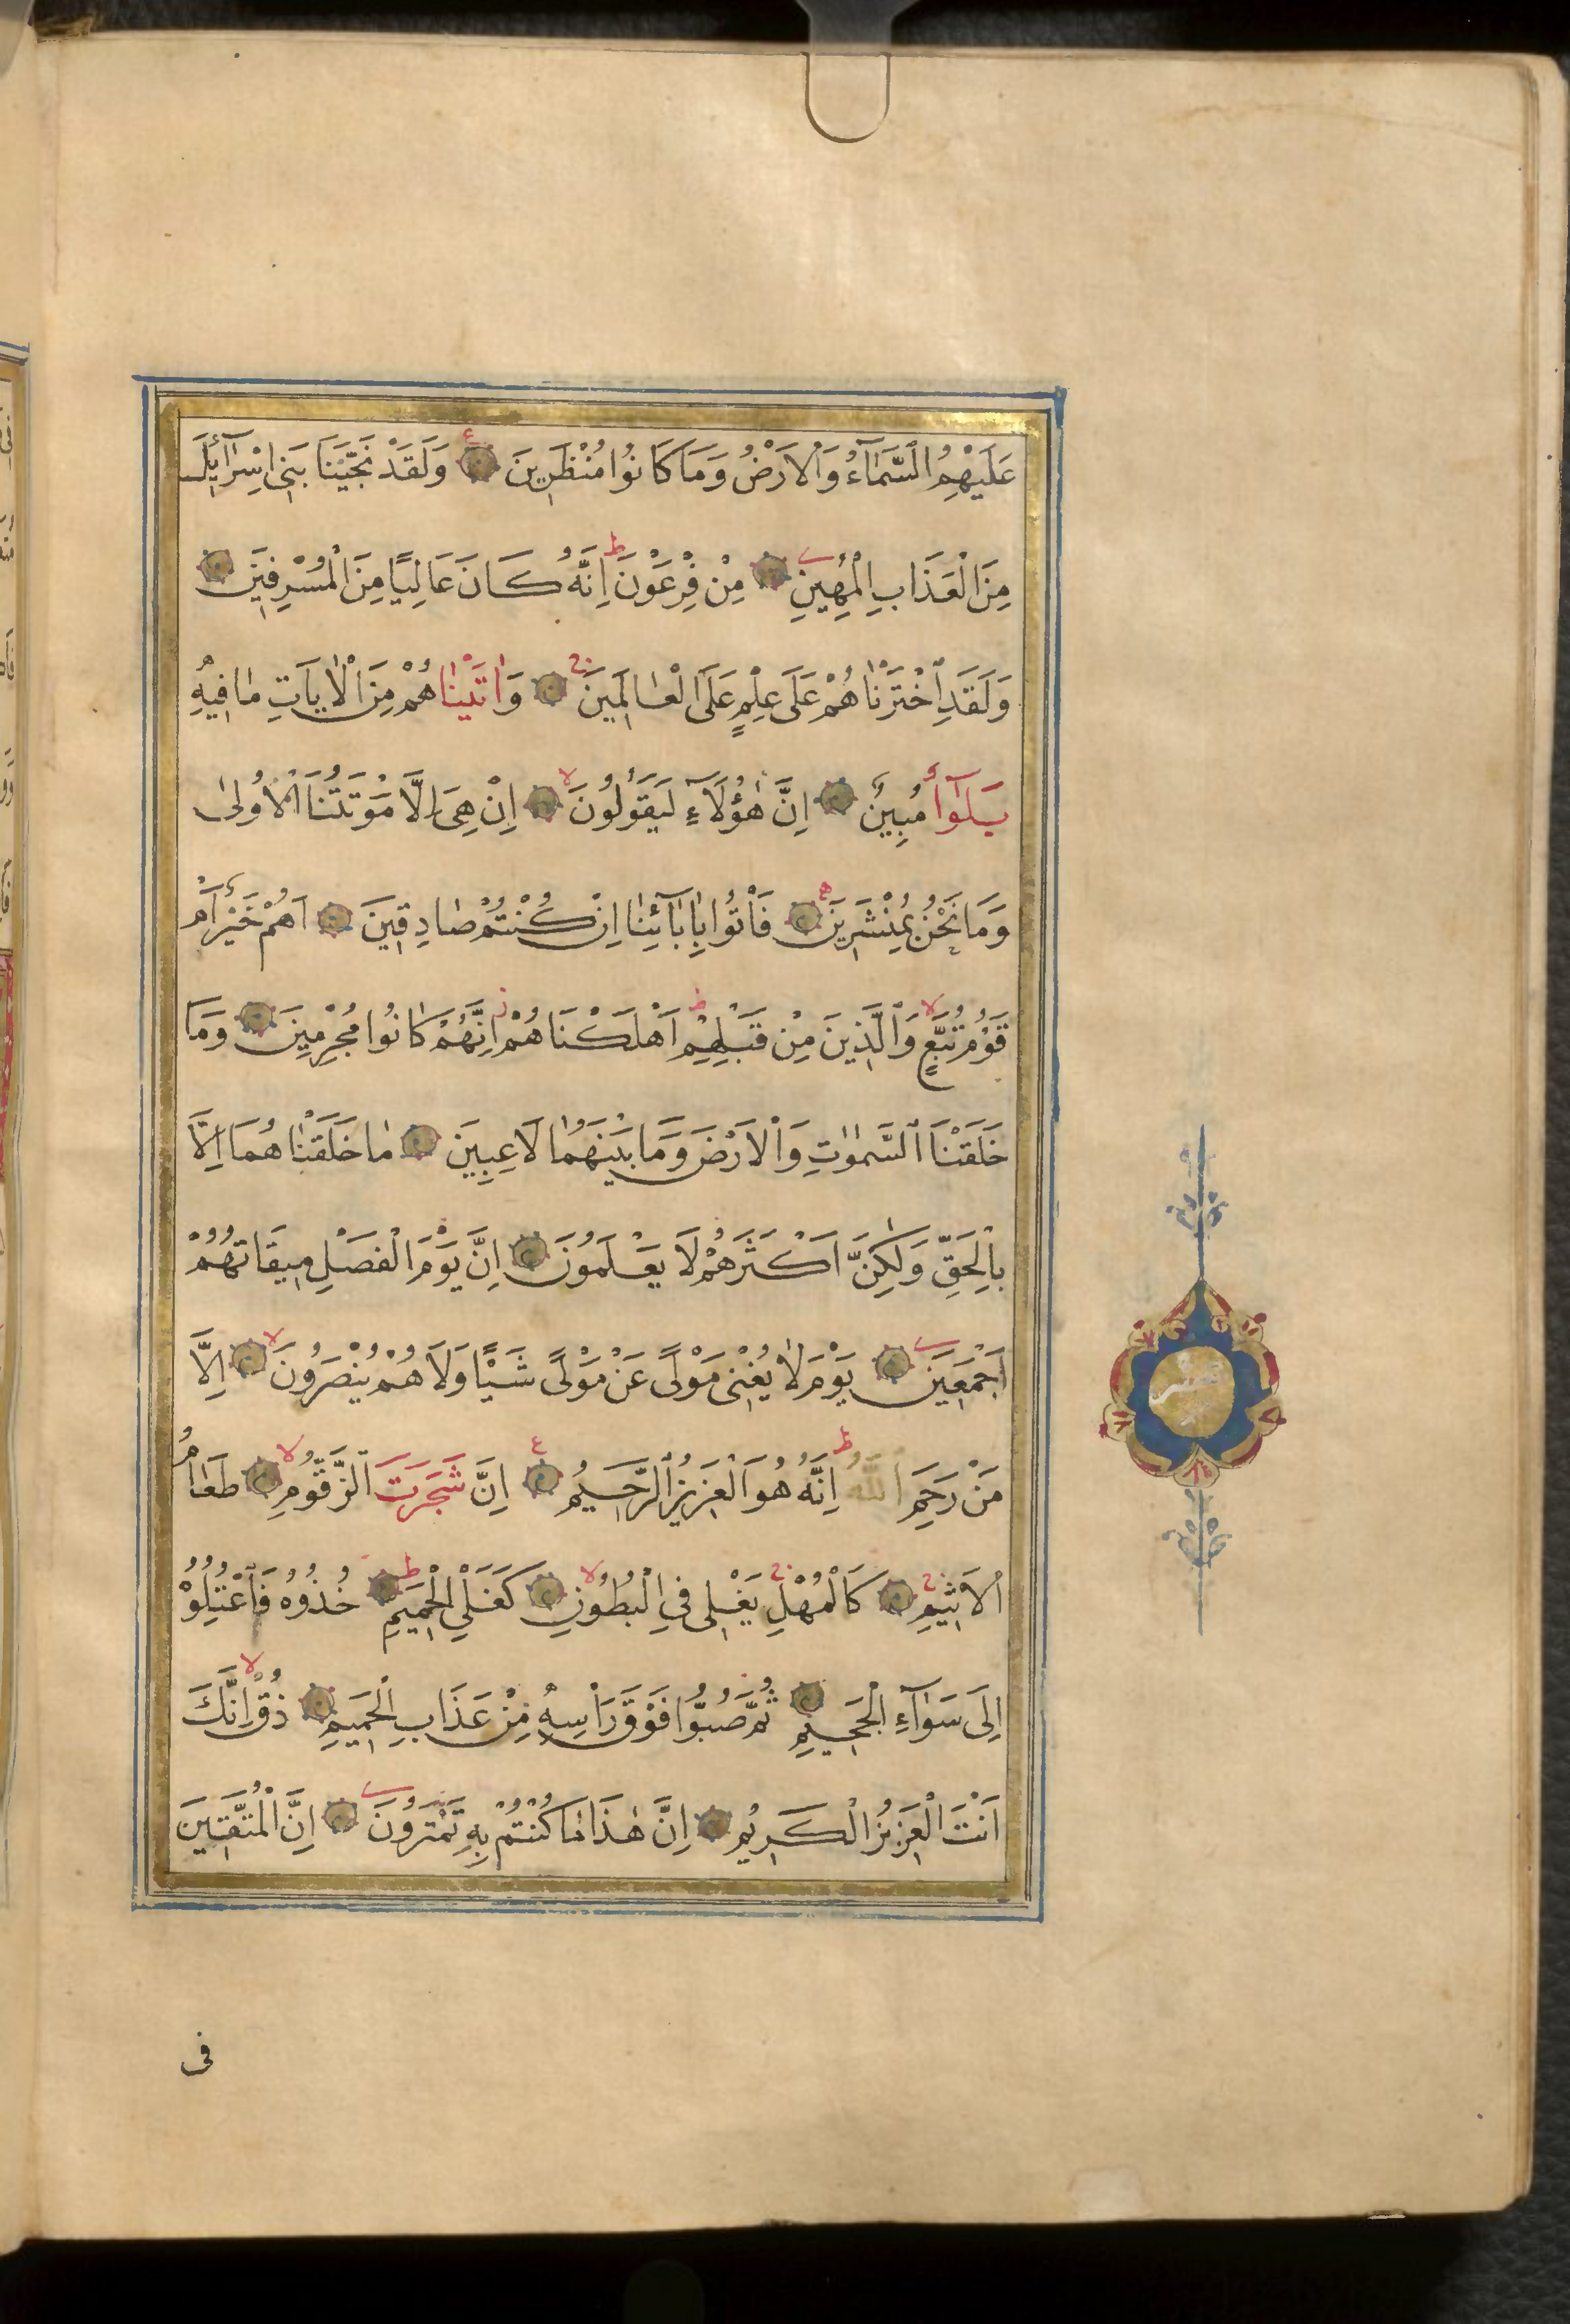 عَلَيْهِمُ السَّمَآءُ وَالْاَرْضُ وَمَا كَانُوا مُنْظَرِينَ وَلَقَدْ نَجَّيْنَا بَنِى اِسْرَآئِلَ
مِنَ الْعَذَابِ الْمُهِينِ مِنْ فِرْعَوْنَ اِنَّهُ كَانَ عَالِيًا مِنَ الْمُسْرِفِينَ
وَلَقَدِ اخْتَرْنَاهُمْ عَلَى عِلْمٍ عَلَى الْعَالَمِينَ وَاتَيْنَاهُمْ مِنَ الْاٰيَاتِ مَا فِيهِ
بَلٰٓؤٌا مُبِينٌ اِنَّ هٰؤُلَآءِ لَيَقُولُونَ اِنْ هِىَ اِلَّا مَوْتَتُنَا الْاُولىٰ
وَمَا نَحْنُ بِمُنْشَرِينَ فَأْتُوا بِاٰبَآئِنَا اِنْ كُنْتُمْ صَادِقِينَ اَهُمْ خَيْرٌ اَمْ
قَوْمُ تُبَّعٍ وَالَّذِينَ مِنْ قَبْلِهِمْ اَهْلَكْنَاهُمْ اِنَّهُمْ كَانُوا مُجْرِمِينَ وَمَا
خَلَقْنَا السَّمٰوٰتِ وَالْاَرْضَ وَمَا بَيْنَهُمَا لَاعِبِينَ مَا خَلَقْنَاهُمَا اِلَّا
بِالْحَقِّ وَلٰكِنَّ اَكْثَرَهُمْ لَا يَعْلَمُونَ اِنَّ يَوْمَ الْفَصْلِ مِيقَاتُهُمْ
اَجْمَعِينَ يَوْمَ لَا يُغْنِى مَوْلًى عَنْ مَوْلًى شَيْـًٔا وَلَا هُمْ يُنْصَرُونَ اِلَّا
مَنْ رَحِمَ اللّٰهُ اِنَّهُ هُوَ الْعَزِيزُ الرَّحِيمُ اِنَّ شَجَرَتَ الزَّقُّومِ طَعَامُ
الْاَثِيمِ كَالْمُهْلِ يَغْلِى فِى الْبُطُونِ كَغَلْىِ الْحَمِيمِ خُذُوهُ فَاعْتِلُوهُ
اِلَى سَوَآءِ الْجَحِيمِ ثُمَّ صُبُّوا فَوْقَ رَأْسِهِ مِنْ عَذَابِ الْحَمِيمِ ذُقْ اِنَّكَ
اَنْتَ الْعَزِيزُ الْكَرِيمُ اِنَّ هٰذَا مَا كُنْتُمْ بِهِ تَمْتَرُونَ اِنَّ الْمُتَّقِينَ
فى